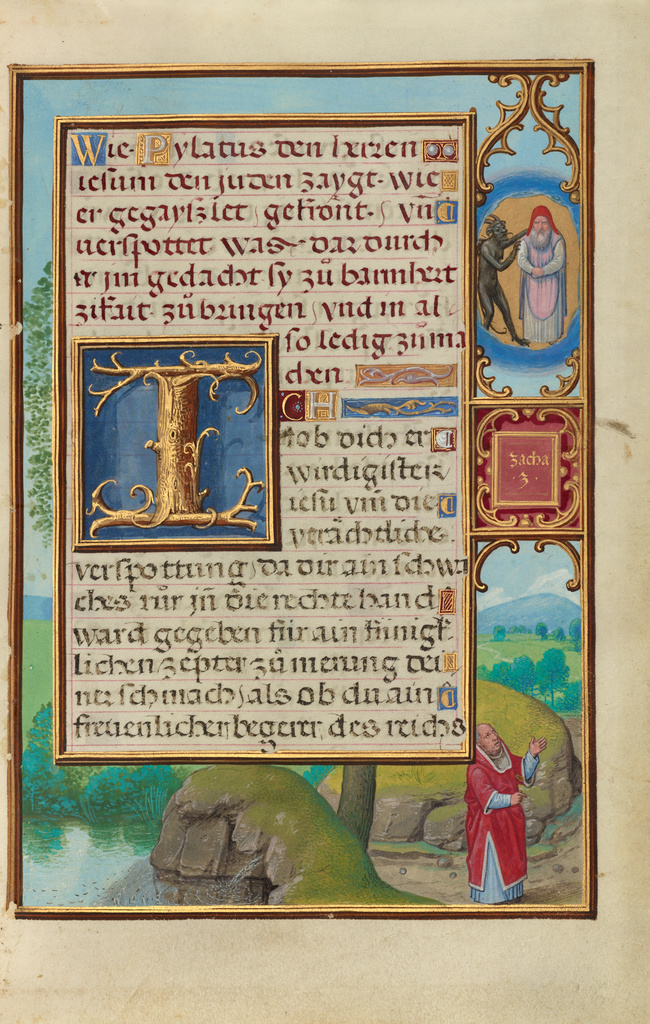 Wie Pylatus den herren
iesum den juden zaygt. wie
er gegayszlet, gekrönt, vn̄
verspottet was dar durch
er jm gedacht sy zů barmhert
zikait zůbringen, vnd in al
so ledig zůma
chen
ICH
lob dich er
wirdigister
iesu vm̄ die
verächtliche
verspottung, da dir ain schwa
ches růr jn die rechte hand
ward gegeben für ain künigk
lichen zepter zů merung dei
ner schmach, als ob du ain
freuenlicher begerer des reichs
zacha
3.